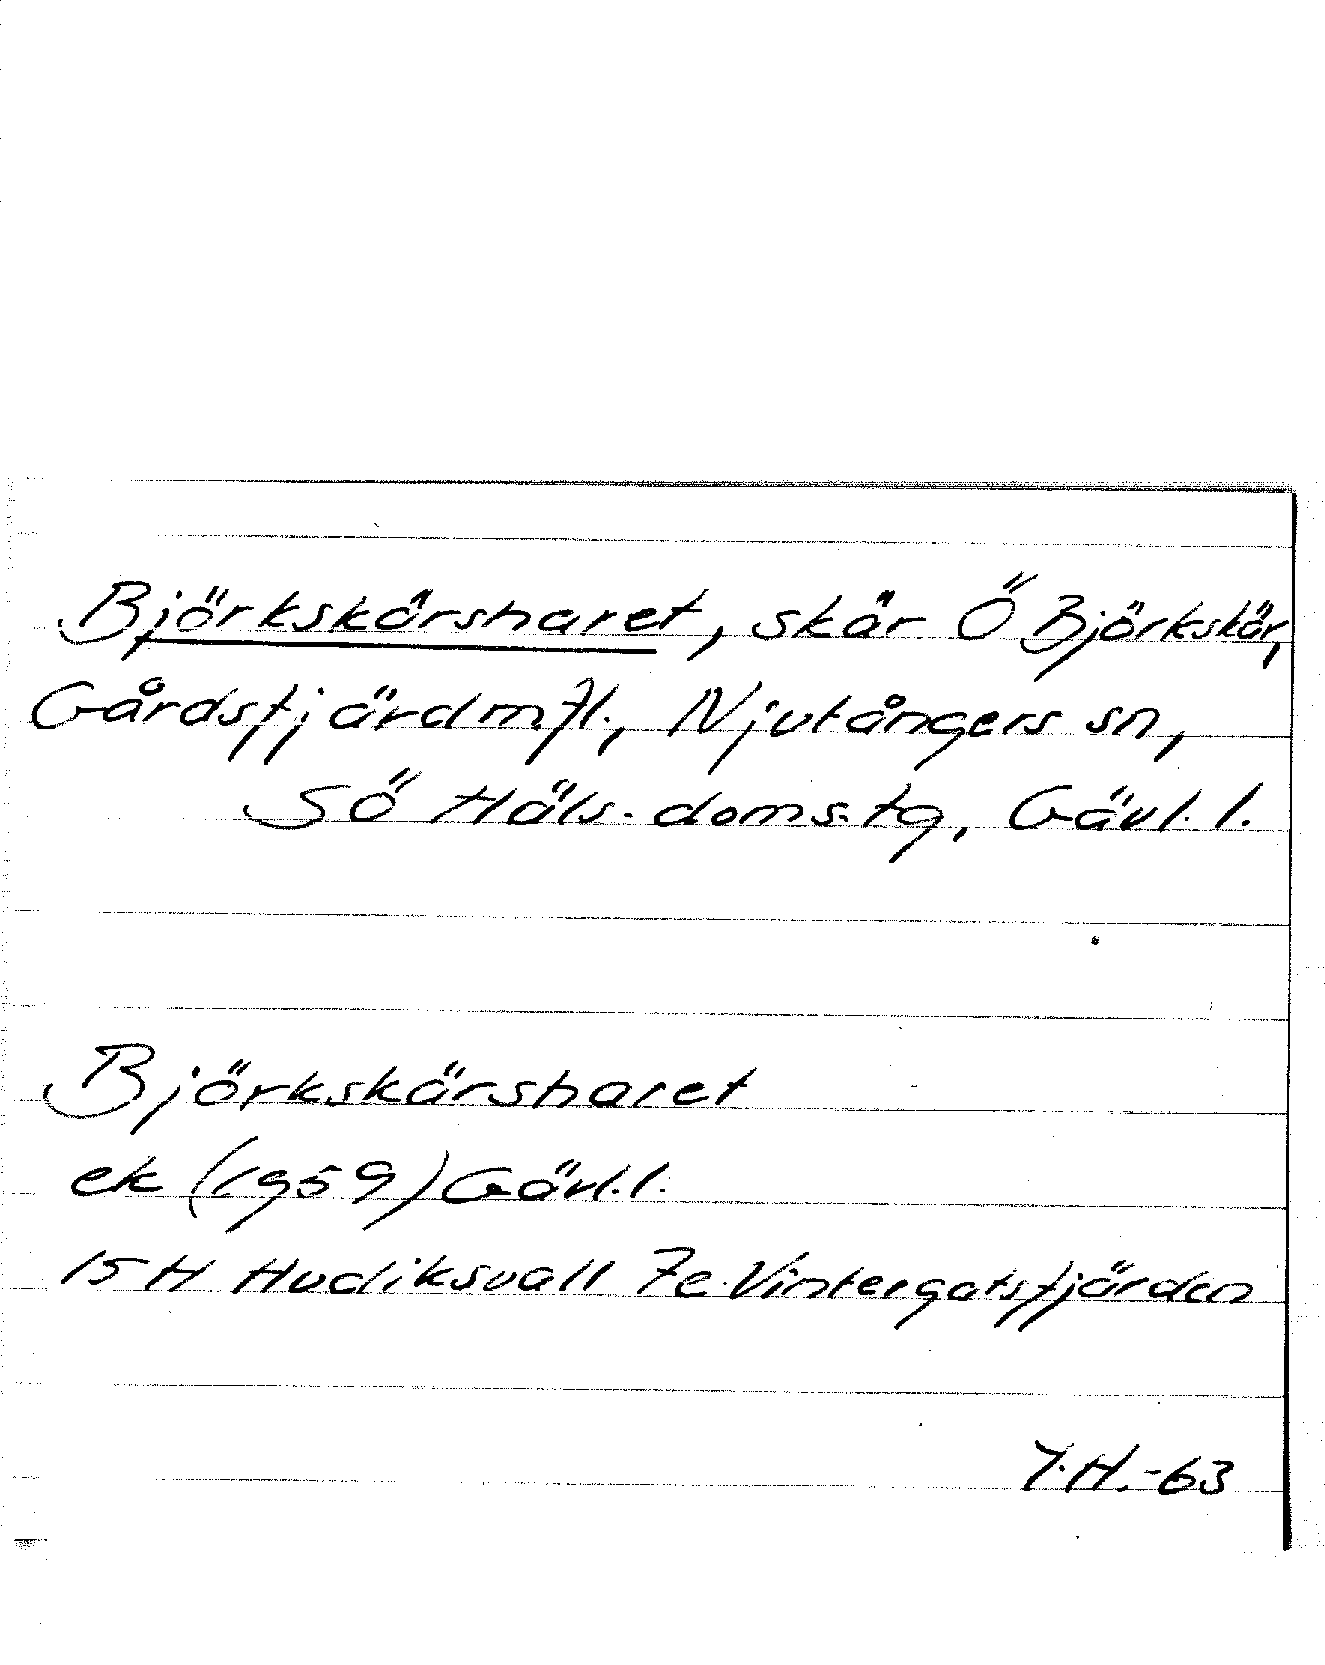 Björkskärsharet, skär Ö Björkskär,
Gårdsfjärd m.fl., Njutångers sn,
SÖ Häls. doms.tg, Gävl. l.
Björkskärsharet
ek (1959) Gävl. l.
15 H Hudiksvall 7e Vintergatsfjärden
Y.H. -63